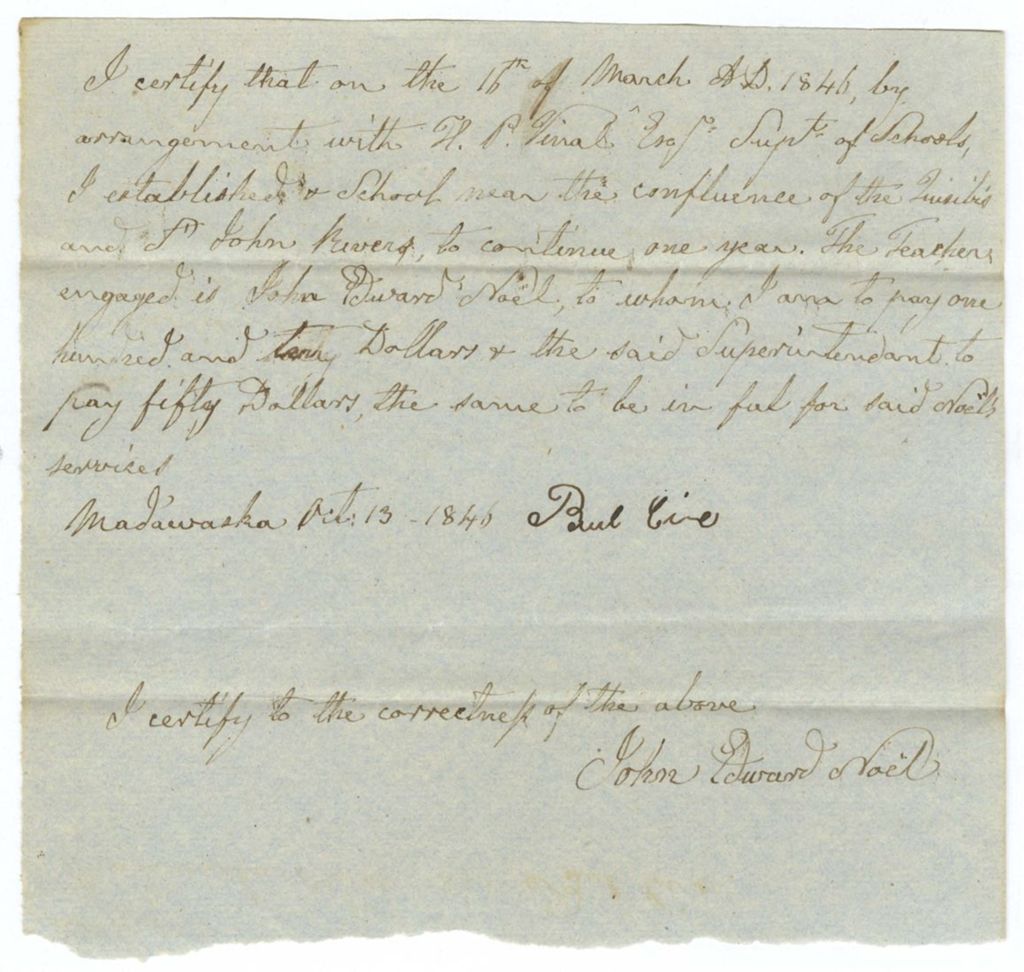 I certify that on the 16th of March A.D. 1846, by
arrangement with H. P. Vinal Esqr. Supt. of Schools,
I established a School near the confluence of the Quisibis
and St John Rivers, to continue one year. The Teacher
engaged is John Edward Noël, to whom I am to pay one
hundred and Dollars & the said Superintendant to
pay fifty Dollars, the same to be in ful for said Noël's
servises
Madawaska Oct: 13 - 1846
I certify to the correctness of the above
John Edward Noël